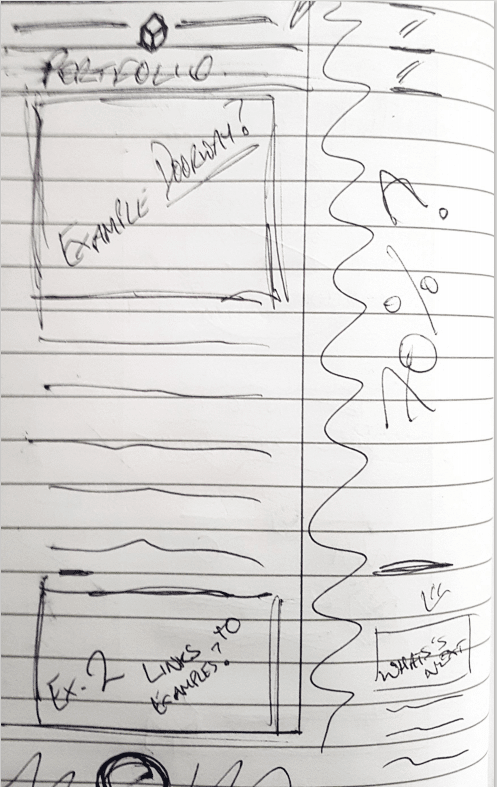 PORTFOLIO
EXAMPLE DOORWAY?
Ex. 2
LINKS TO
EXAMPLES?
WHAT'S
NEXT